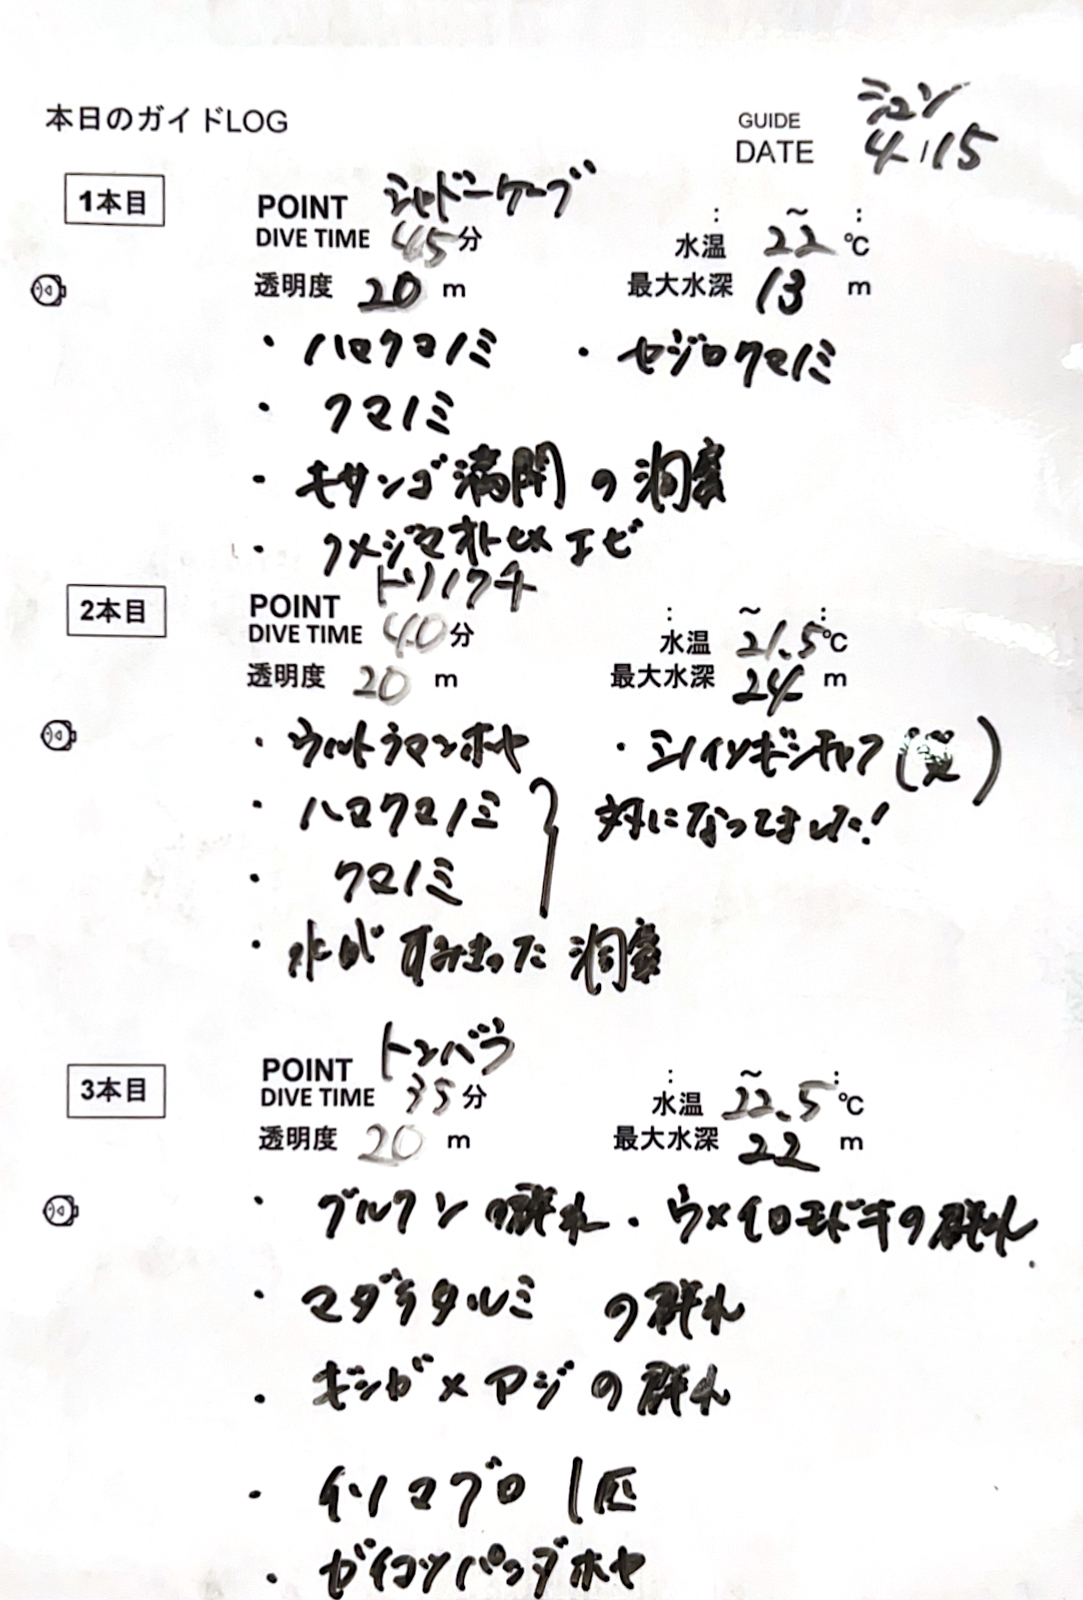 本日のガイドLOG
GUIDE シュン
DATE 4/15
1本目
POINT シャドーケーブ
: ~ :
DIVE TIME 45分 水温 22℃
透明度 20 m 最大水深 13 m
・ハマクマノミ ・セジロクマノミ
・クマノミ
・キサンゴ満開の洞窟
・クメジマオトヒメエビ
2本目
POINT トリノクチ
: ~ :
DIVE TIME 40分 水温 21.5℃
透明度 20 m 最大水深 24 m
・ウルトラマンホヤ ・シノイソギンチャク
・ハマクマノミ 対になってました!
・クマノミ
・水がすみきった洞窟
3本目
POINT トンバラ
: ~ :
DIVE TIME 35分 水温 22.5℃
透明度 20 m 最大水深 22 m
・グルクンの群れ ・ウメイロモドキの群れ
・マダラタルミの群れ
・ギンガメアジの群れ
・イソマグロ 1匹
・ガイコツパンダホヤ